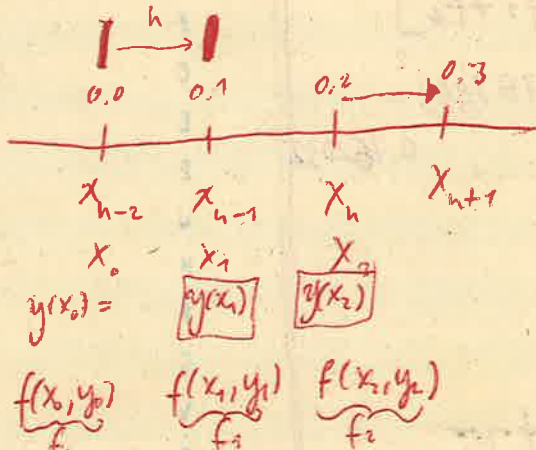 h
0,0 0,1 0,2 0,3
x_{n-2} x_{n-1} x_n x_{n+1}
x_0 x_1 x_2
y(x_0) = y(x_1) y(x_2)
f(x_0, y_0) f(x_1, y_1) f(x_2, y_2)
f_2